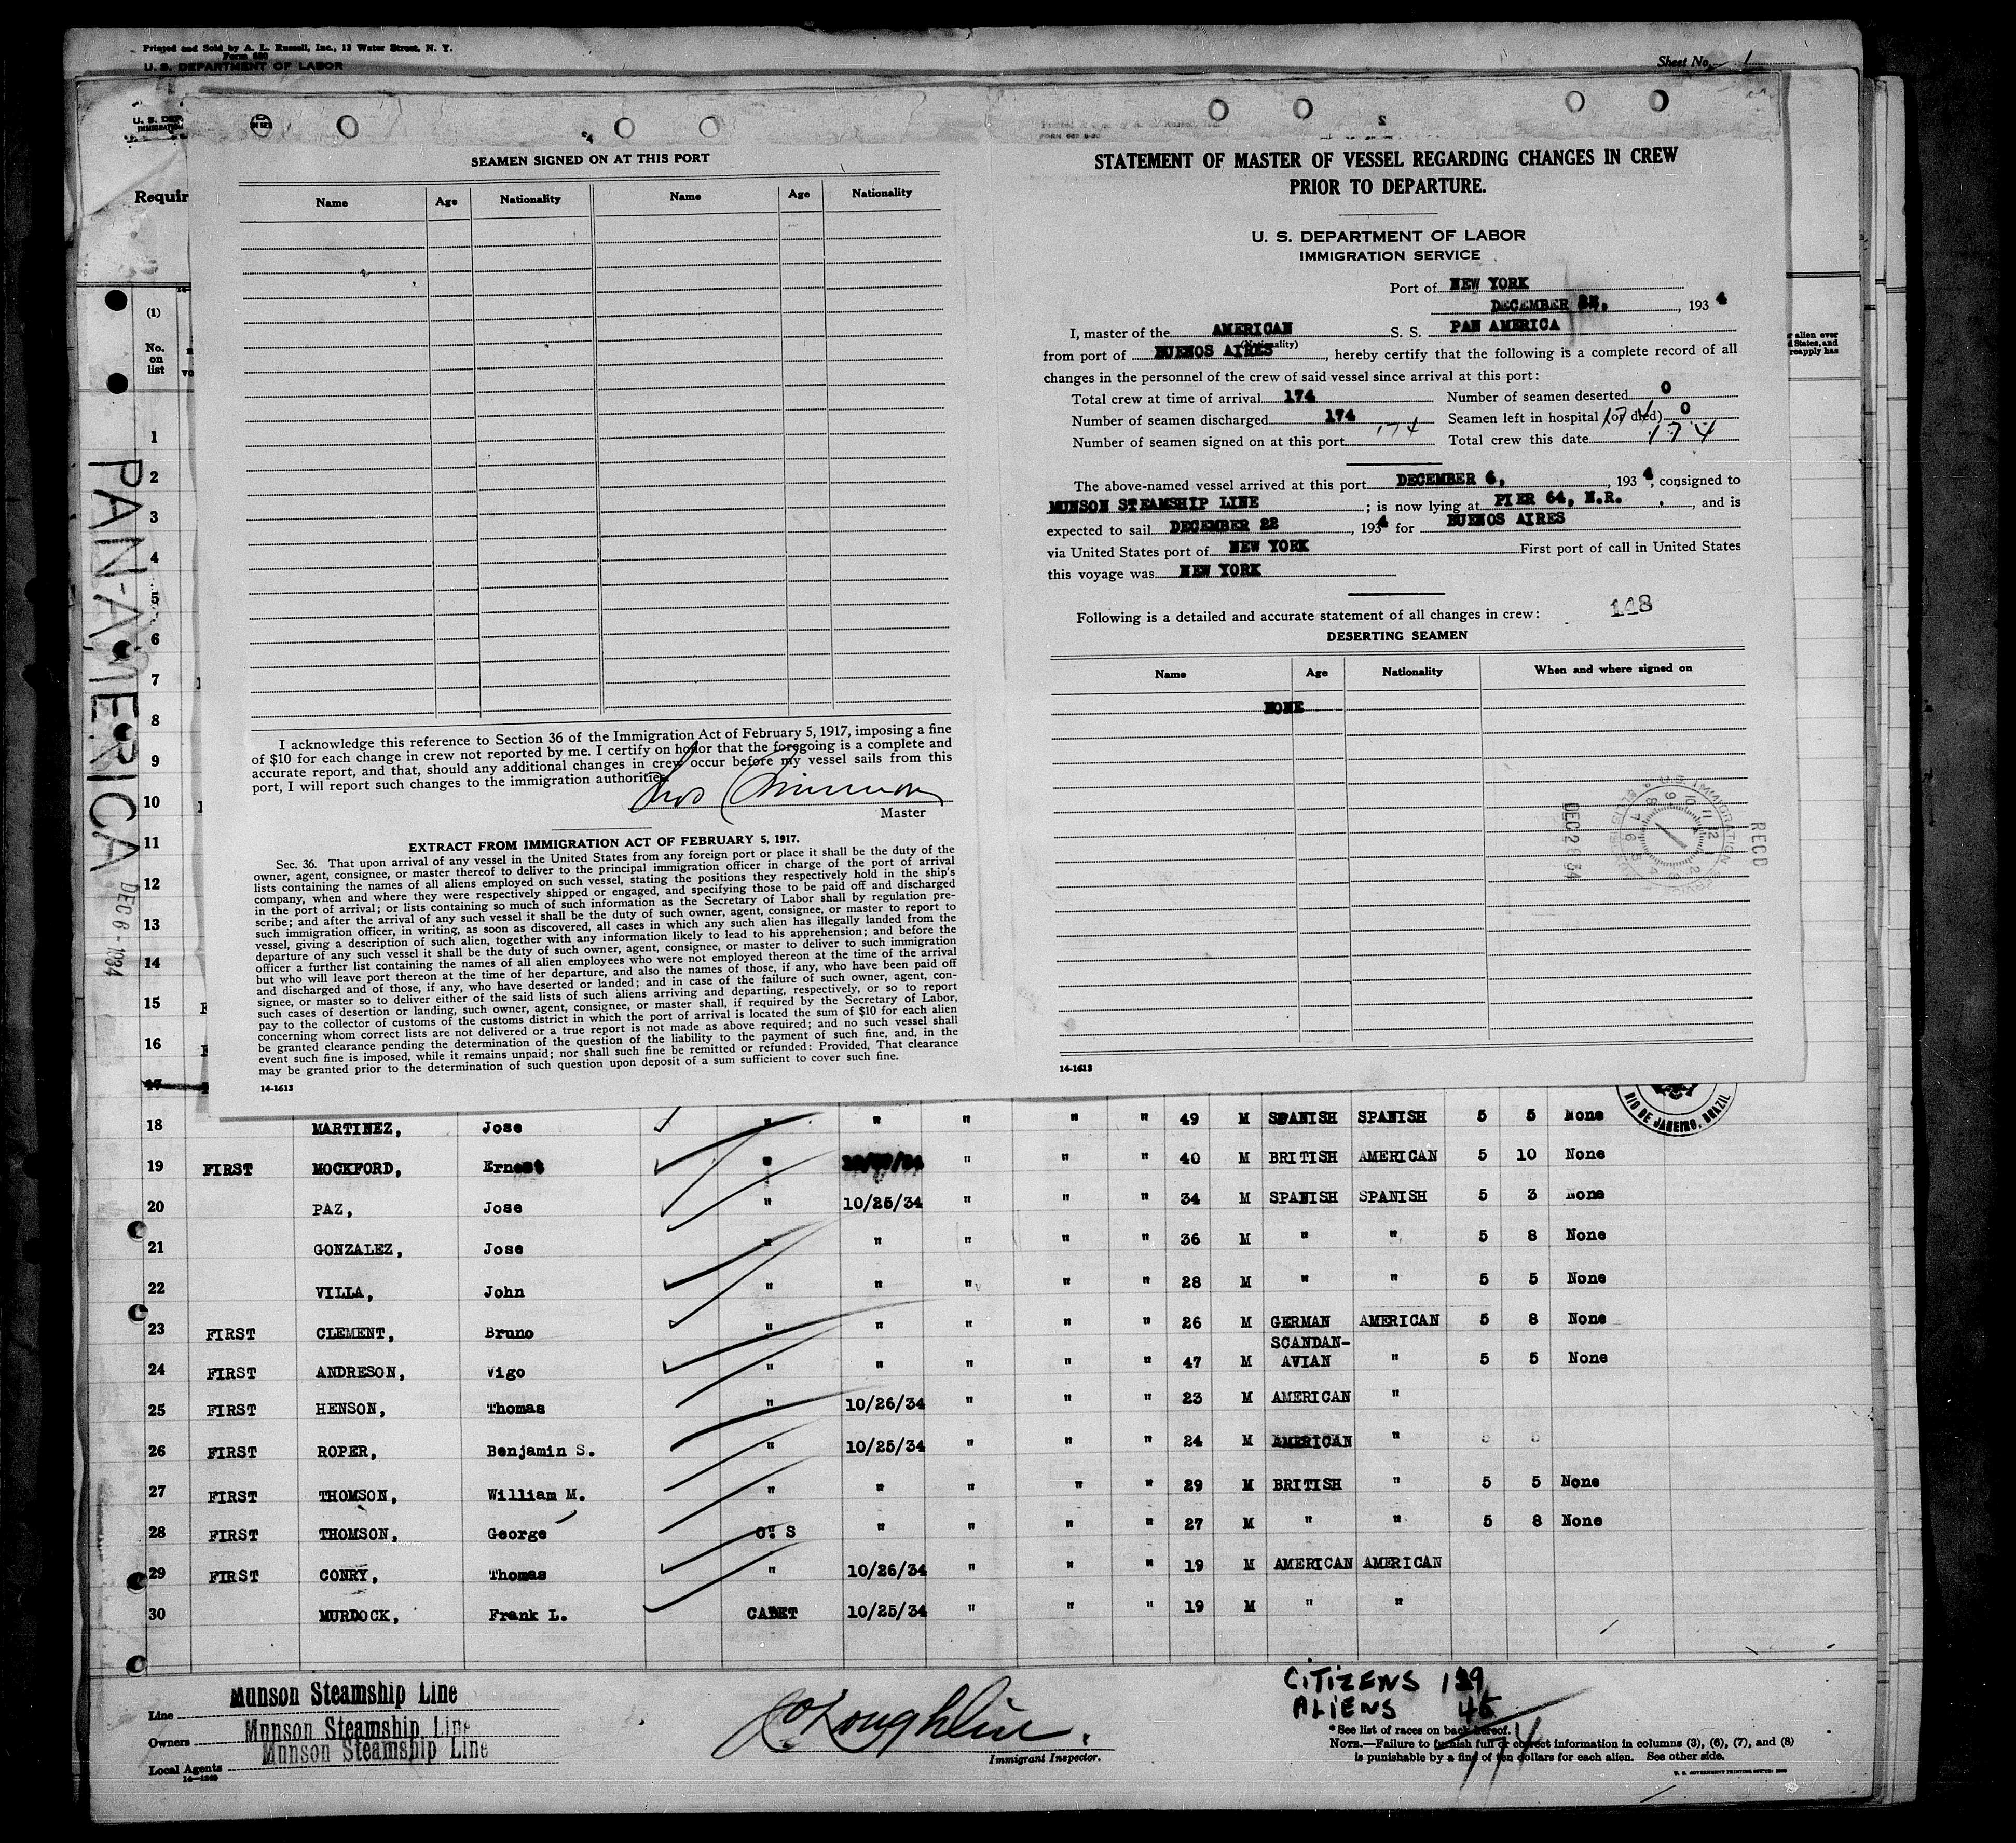 Printed and Sold by A. L. Russell, Inc., 13 Water Street, N. Y.
Form 680
U. S. DEPARTMENT OF LABOR
Sheet No. 1
U. S. DEP
IMMIGRATI
Requir
(1)
No.
on
list
r alien ever
d States, and
reapply has
PAN-AMERICA
DEC 6 - 1934
SEAMEN SIGNED ON AT THIS PORT
Name Age Nationality Name Age Nationality
I acknowledge this reference to Section 36 of the Immigration Act of February 5, 1917, imposing a fine
of $10 for each change in crew not reported by me. I certify on honor that the foregoing is a complete and
accurate report, and that, should any additional changes in crew occur before my vessel sails from this
port, I will report such changes to the immigration authorities.
Master
EXTRACT FROM IMMIGRATION ACT OF FEBRUARY 5, 1917.
Sec. 36. That upon arrival of any vessel in the United States from any foreign port or place it shall be the duty of the
owner, agent, consignee, or master thereof to deliver to the principal immigration officer in charge of the port of arrival
lists containing the names of all aliens employed on such vessel, stating the positions they respectively hold in the ship's
company, when and where they were respectively shipped or engaged, and specifying those to be paid off and discharged
in the port of arrival; or lists containing so much of such information as the Secretary of Labor shall by regulation pre-
scribe; and after the arrival of any such vessel it shall be the duty of such owner, agent, consignee, or master to report to
such immigration officer, in writing, as soon as discovered, all cases in which any such alien has illegally landed from the
vessel, giving a description of such alien, together with any information likely to lead to his apprehension; and before the
departure of any such vessel it shall be the duty of such owner, agent, consignee, or master to deliver to such immigration
officer a further list containing the names of all alien employees who were not employed thereon at the time of the arrival
but who will leave port thereon at the time of her departure, and also the names of those, if any, who have been paid off
and discharged and of those, if any, who have deserted or landed; and in case of the failure of such owner, agent, con-
signee, or master so to deliver either of the said lists of such aliens arriving and departing, respectively, or so to report
such cases of desertion or landing, such owner, agent, consignee, or master shall, if required by the Secretary of Labor,
pay to the collector of customs of the customs district in which the port of arrival is located the sum of $10 for each alien
concerning whom correct lists are not delivered or a true report is not made as above required; and no such vessel shall
be granted clearance pending the determination of the question of the liability to the payment of such fine, and, in the
event such fine is imposed, while it remains unpaid; nor shall such fine be remitted or refunded: Provided, That clearance
may be granted prior to the determination of such question upon deposit of a sum sufficient to cover such fine.
14-1613
STATEMENT OF MASTER OF VESSEL REGARDING CHANGES IN CREW
PRIOR TO DEPARTURE.
U. S. DEPARTMENT OF LABOR
IMMIGRATION SERVICE
Port of NEW YORK
DECEMBER , 1934
I, master of the AMERICAN S. S. PAN AMERICA
(Nationality)
from port of BUENOS AIRES, hereby certify that the following is a complete record of all
changes in the personnel of the crew of said vessel since arrival at this port:
Total crew at time of arrival 174 Number of seamen deserted 0
Number of seamen discharged 174 Seamen left in hospital (or died) 0
Number of seamen signed on at this port 174 Total crew this date 174
The above-named vessel arrived at this port DECEMBER 6, 1934, consigned to
MUNSON STEAMSHIP LINE ; is now lying at PIER 64, N.R. , and is
expected to sail DECEMBER 22, 1934 for BUENOS AIRES
via United States port of NEW YORK First port of call in United States
this voyage was NEW YORK
Following is a detailed and accurate statement of all changes in crew: 148
DESERTING SEAMEN
Name Age Nationality When and where signed on
NONE
RECD
DEC 26 34
14-1613
1
2
3
4
5
6
7
8
9
10
11
12
13
14
15
16
17
RIO DE JANEIRO, BRAZIL
18 MARTINEZ, Jose " " " " " 49 M SPANISH SPANISH 5 5 None
19 FIRST MOCKFORD, Ernest " " " " 40 M BRITISH AMERICAN 5 10 None
20 PAZ, Jose " 10/25/34 " " " 34 M SPANISH SPANISH 5 3 None
21 GONZALEZ, Jose " " " " " 36 M " " 5 8 None
22 VILLA, John " " " " " 28 M " " 5 5 None
23 FIRST CLEMENT, Bruno " " " " " 26 M GERMAN AMERICAN 5 8 None
24 FIRST ANDRESON, Vigo " " " " " 47 M SCANDAN-
AVIAN " 5 5 None
25 FIRST HENSON, Thomas " 10/26/34 " " " 23 M AMERICAN "
26 FIRST ROPER, Benjamin S. " 10/25/34 " " " 24 M AMERICAN " 5 5
27 FIRST THOMSON, William M. " " " " " 29 M BRITISH " 5 5 None
28 FIRST THOMSON, George O. S " " " " 27 M " " 5 8 None
29 FIRST CONRY, Thomas " 10/26/34 " " " 19 M AMERICAN AMERICAN
30 MURDOCK, Frank L. CADET 10/25/34 " " " 19 M " "
Line Munson Steamship Line
Owners Munson Steamship Line
Local Agents Munson Steamship Line
14-1240
O'Loughlin.
Immigrant Inspector.
CITIZENS 129
ALIENS 45
174
*See list of races on back hereof.
NOTE.—Failure to furnish full or correct information in columns (3), (6), (7), and (8)
is punishable by a fine of ten dollars for each alien. See other side.